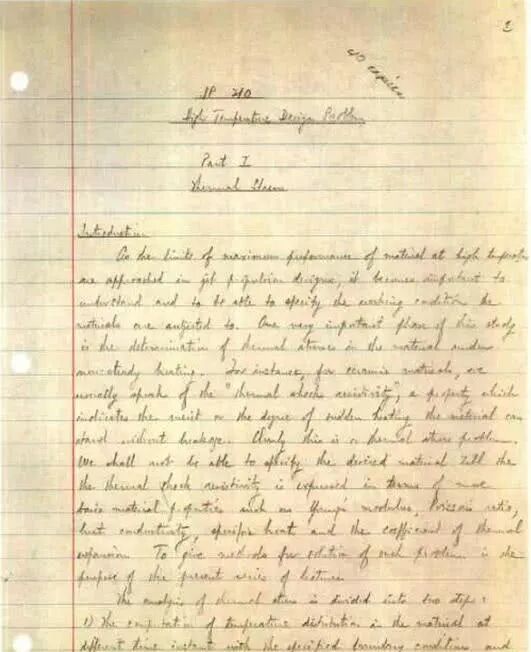 40 copies
JP 210
High Temperature Design Problem
Part I
Thermal Stress
Introduction
As the limits of maximum performance of material at high temperatu
are approached in jet propulsion designs, it becomes important to
understand and to be able to specify the working condition the
materials are subjected to. One very important phase of this study
is the determination of thermal stresses in the material under
non-steady heating. For instance, for ceramic materials, we
usually speak of the "thermal shock resistivity", a property which
indicates the merit or the degree of sudden heating the material can
stand without breakage. Clearly this is a thermal stress problem.
We shall not be able to specify the desired material till the
the thermal shock resistivity is expressed in terms of more
basic material properties such as Young's modulus, Poisson's ratio,
heat conductivity, specific heat and the coefficient of thermal
expansion. To give methods for solution of such problem is the
purpose of the present series of lectures.
The analysis of thermal stress is divided into two steps:
1) The computation of temperature distribution in the material at
different time instant with the specified boundary conditions and